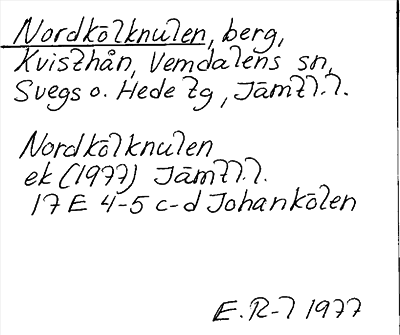 Nordkölknulen, berg,
Kvisthån, Vemdalens sn,
Svegs o. Hede tg, Jämtl.l.
Nordkölknulen
ek (1977) Jämtl.l.
17 E 4-5 c-d Johankölen
E.R-l 1977